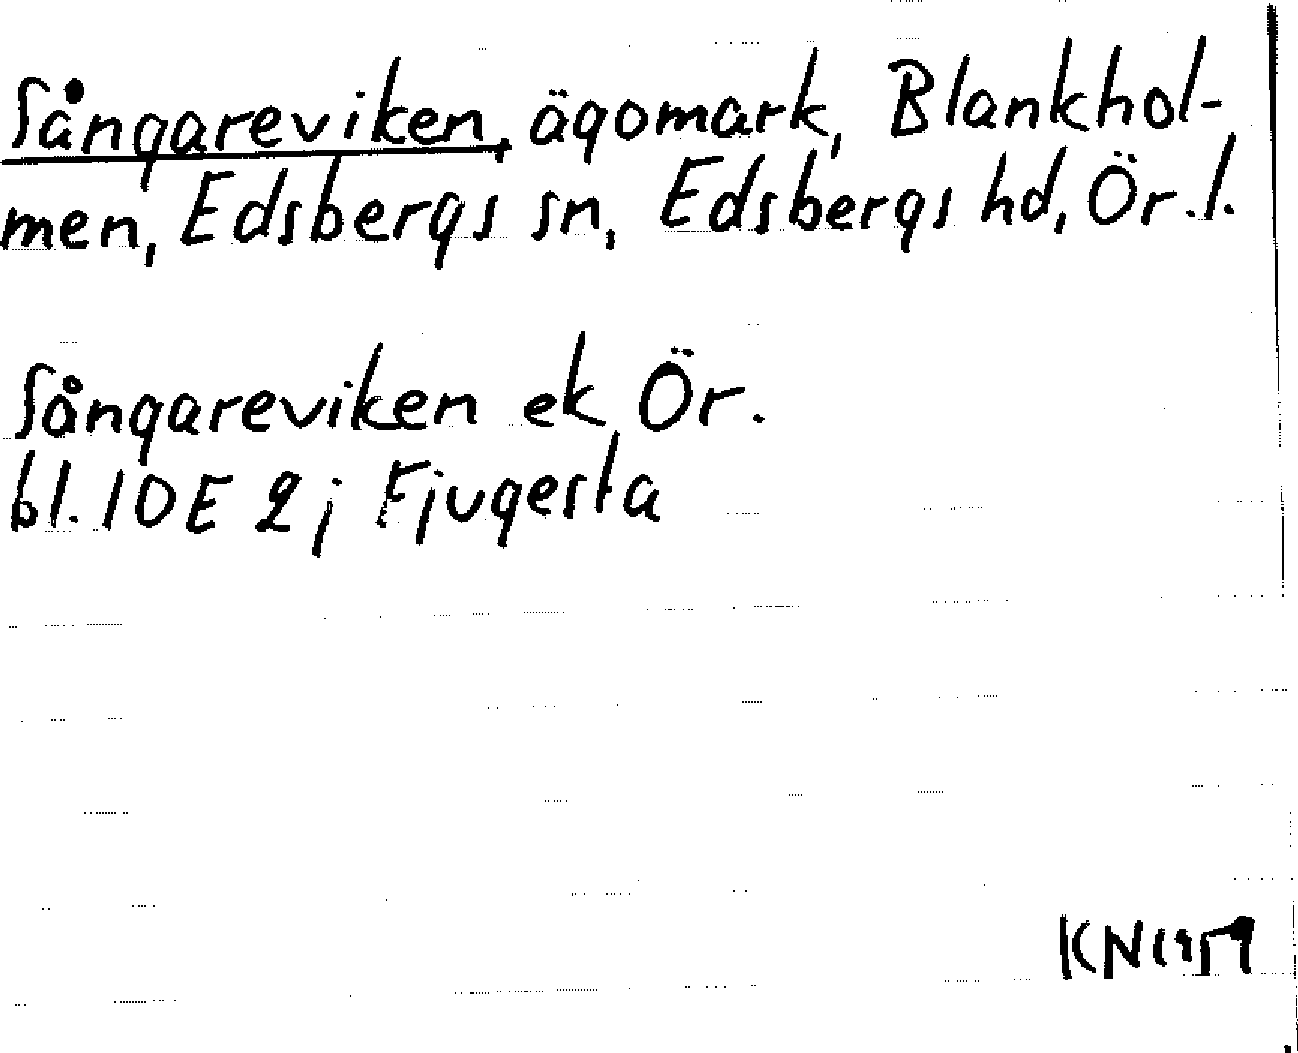 Sångareviken, ägomark, Blankhol-
men, Edsbergs sn, Edsbergs hd, Ör. l.
Sångareviken ek Ör.
bl. 10E 2j Fjugesta